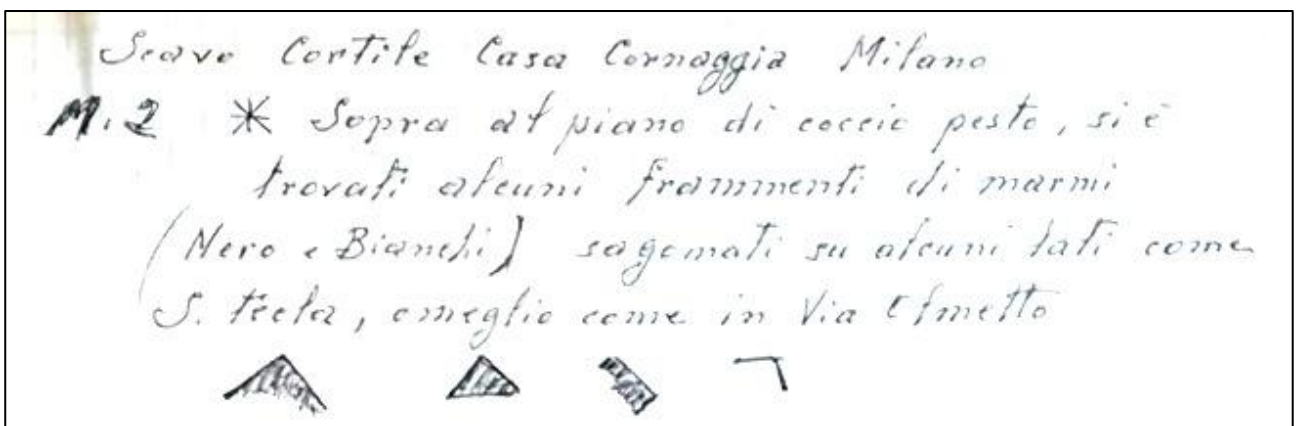 Scavo Cortile Casa Cornaggia Milano
M.2 * Sopra al piano di coccio pesto, si è
trovati alcuni frammenti di marmi
(Nero e Bianchi) sagomati su alcuni lati come
S. tecla, omeglio come in Via Olmetto